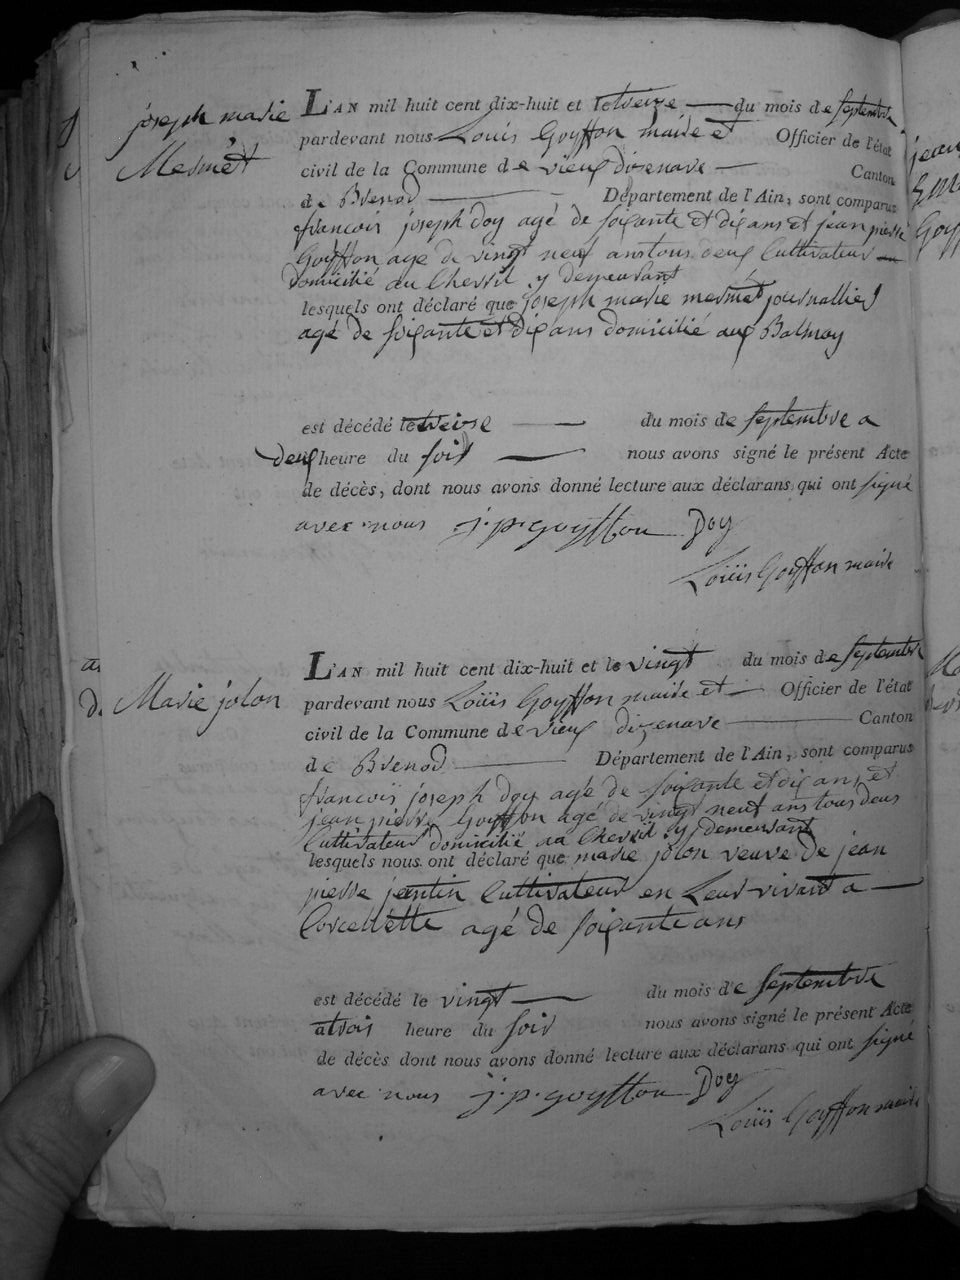 joseph marie
Mermêt
L'AN mil huit cent dix-huit et le treize du mois de septembre
pardevant nous Louis Goyffon maire et Officier de l'état
civil de la Commune de vieux dizenave Canton
de Brenod Département de l'Ain, sont comparus
francois joseph Doy agé de soixante et dix ans et jean pierre
Goyffon age de vingt neuf ans tous deux Cultivateur
Domicilié au Chevril y demeurant
lesquels ont déclaré que joseph marie mermêt journallier
agé de soixante et dix ans domicilié aux Balmay
est décédé le treize du mois de septembre a
deux heure du soir nous avons signé le présent Acte
de décès, dont nous avons donné lecture aux déclarans qui ont signé
avec nous j.p. goyffon Doy
Louis Goyffon maire
Marie jolon
L'AN mil huit cent dix-huit et le vingt du mois de septembre
pardevant nous Louis Goyffon maire et Officier de l'état
civil de la Commune de vieux dizenave Canton
de Brenod Département de l'Ain, sont comparus
francois joseph Doy agé de soixante et dix ans et
jean pierre Goyffon agé de vingt neuf ans tous deux
Cultivateur domicilié au Chevril y demeurant
lesquels nous ont déclaré que marie jolon veuve de jean
pierre jantin Cultivateur en Leur vivant a
Corcellette agé de soixante ans
est décédé le vingt du mois de septembre
a trois heure du soir nous avons signé le présent Acte
de décès dont nous avons donné lecture aux déclarans qui ont signé
avec nous j.p. goyffon Doy
Louis Goyffon maire